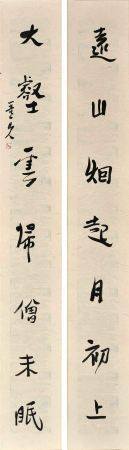 遠山烟起月初上
大壑雲歸僧未眠